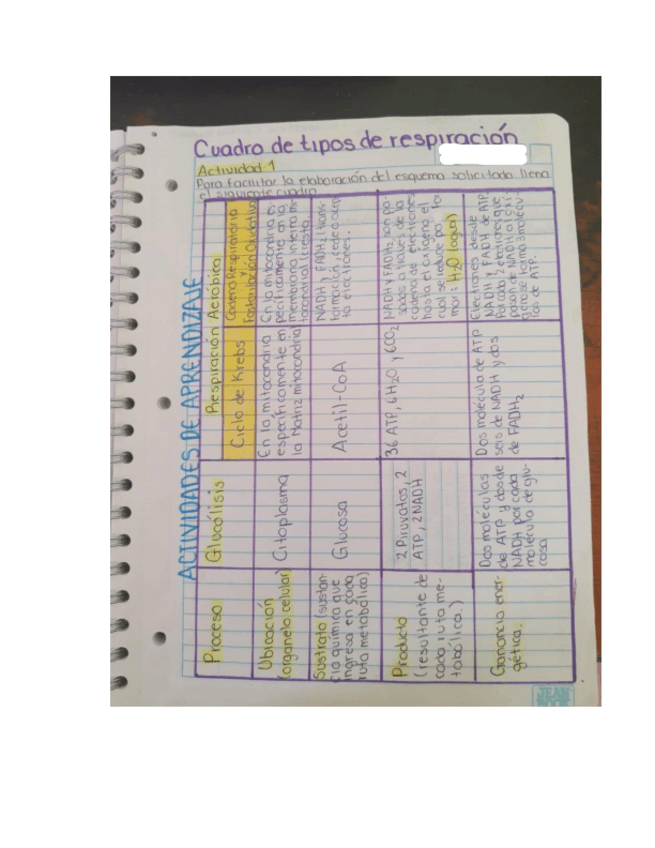 Cuadro de tipos de respiración
Actividad 1
Para facilitar la elaboración del esquema solicitado llena
el siguiente cuadro
ACTIVIDADES DE APRENDIZAJE
Proceso
Glucólisis
Respiración Aeróbica
Ciclo de Krebs
Cadena Respiratoria
y
Fosforilación Oxidativa
Ubicación
(organelo celular)
Citoplasma
En la mitocondria
específicamente en
la Matriz mitocondrial
En la mitocondria es
pecíficamente en la
membrana interna mi
tocondrial (cresta
Sustrato (sustan-
cia química que
ingresa en cada
ruta metabólica)
Glucosa
Acetil-CoA
NADH y FADH2: trans-
formación, cede o acep
ta electrones.
Producto
(resultante de
cada ruta me-
tabólica.)
2 Piruvatos, 2
ATP, 2NADH
36 ATP, 6H2O y 6CO2
NADH y FADH2, son pa-
sados a través de la
cadena de electrones
hasta el oxígeno el
cual se reduce para for
mar: H2O (agua)
Ganancia ener-
gética.
Dos moléculas
de ATP y dos de
NADH por cada
molécula de glu-
cosa
Dos molécula de ATP
seis de NADH y dos
de FADH2
Electrones desde
NADH y FADH de ATP.
Por cada 2 electrones que
pasan de NADH al oxí-
geno se forma 3 molécu-
las de ATP.